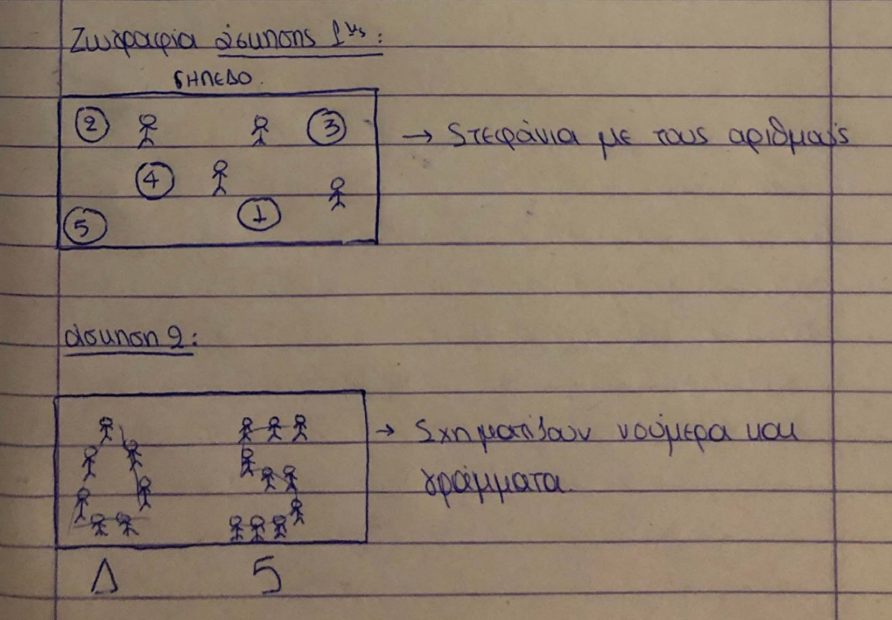 Ζωγραφιά άσκησης 1ης:
ΓΗΠΕΔΟ.
2 3
→ Στεφάνια με τους αριθμούς
4
5 1
άσκηση 2:
→ Σχηματίζουν νούμερα και
γράμματα.
Δ 5